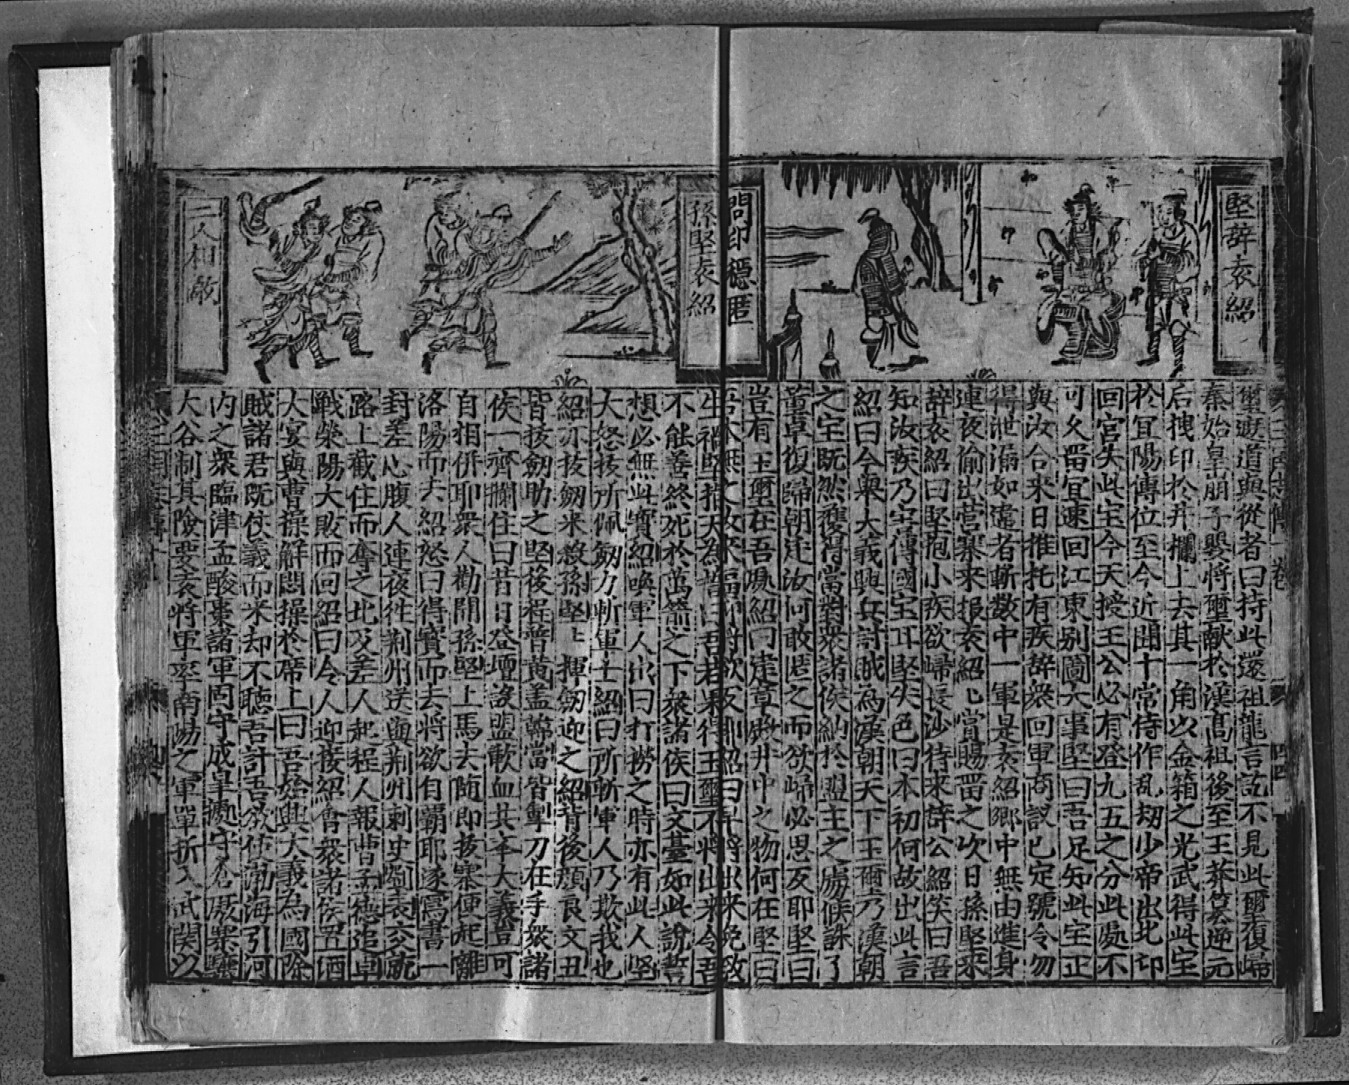 堅辞袁紹
問印隱匿
孫堅袁紹
三人相敵
璽遮道與從者曰持此還祖龍言訖不見此璽復歸
秦始皇崩子嬰将璽献於漢髙祖後至王莽篡逆元
后拽印於井欄上去其一角以金箱之光武得此宝
於宜陽傳位至今近聞十常侍作乱刼少帝出北印
回宫失此宝今天授王公必有登九五之分此處不
可久畱宜速回江東别圖大事堅曰吾足知此宝正
與汝合来日推托有疾辞衆回軍商議已定號令勿
得泄漏如違者斬数中一軍是袁紹鄉中無由進身
連夜偷出营寨来报袁紹匕賞賜畱之次日孫堅来
辞袁紹曰堅抱小疾欲歸長沙特来辞公紹笑曰吾
知汝疾乃宝傳國宝耳堅失色曰本初何故出此言
紹曰今舉大義興兵討賊為漢朝天下玉璽乃漢朝
之宝既然獲得當對衆諸侯納於盟主之處候誅了
董卓復歸朝廷汝何敢匿之而欲歸必思反耶堅曰
豈有玉璽在吾處紹曰建章殿井中之物何在堅曰
吾本無之
生禍堅指天為誓曰吾若果得玉璽不将出来今吾
不能善終死於萬箭之下衆諸侯曰文臺如此說誓
想必無此宝紹喚軍人出曰打撈之時亦有此人堅
大怒拔所佩劒力斬軍士紹曰所斬軍人乃欺我也
紹亦拔劒来殺孫堅匕揮劒迎之紹背後顔良文丑
皆拔劒助之堅後程普黄盖韓當皆掣刀在手衆諸
侯一齊攔住曰昔日登壇設盟歃血共夲大義豈可
自相併耶衆人勸開孫堅上馬去随即拔寨便起離
洛陽而去紹怒曰得寳而去将欲有覇耶遂寫書一
封差心腹人連夜徃荆州送與荆州刺史劉表交就
路上截住而奪之此及差人起程人報曹孟德追卓
戰滎陽大敗而回紹曰令人迎接紹會衆諸侯置酒
大宴與曹操解悶操於席上曰吾始興大義為國除
賊諸君既仗義而来却不聽吾計吾欲使渤海引河
内之衆臨津孟酸棗諸軍固守成臯據守倉厫塞轘
大谷制其險要袁将軍率南陽之軍單折入武関以